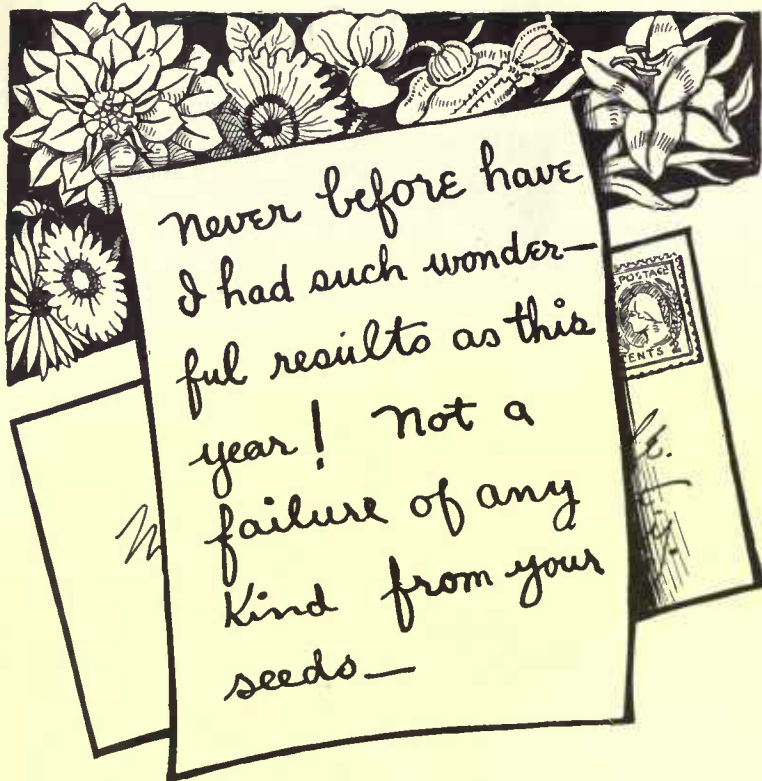 never before have
I had such wonder—
ful results as this
year! Not a
failure of any
Kind from your
seeds—
POSTAGE
CENTS 2